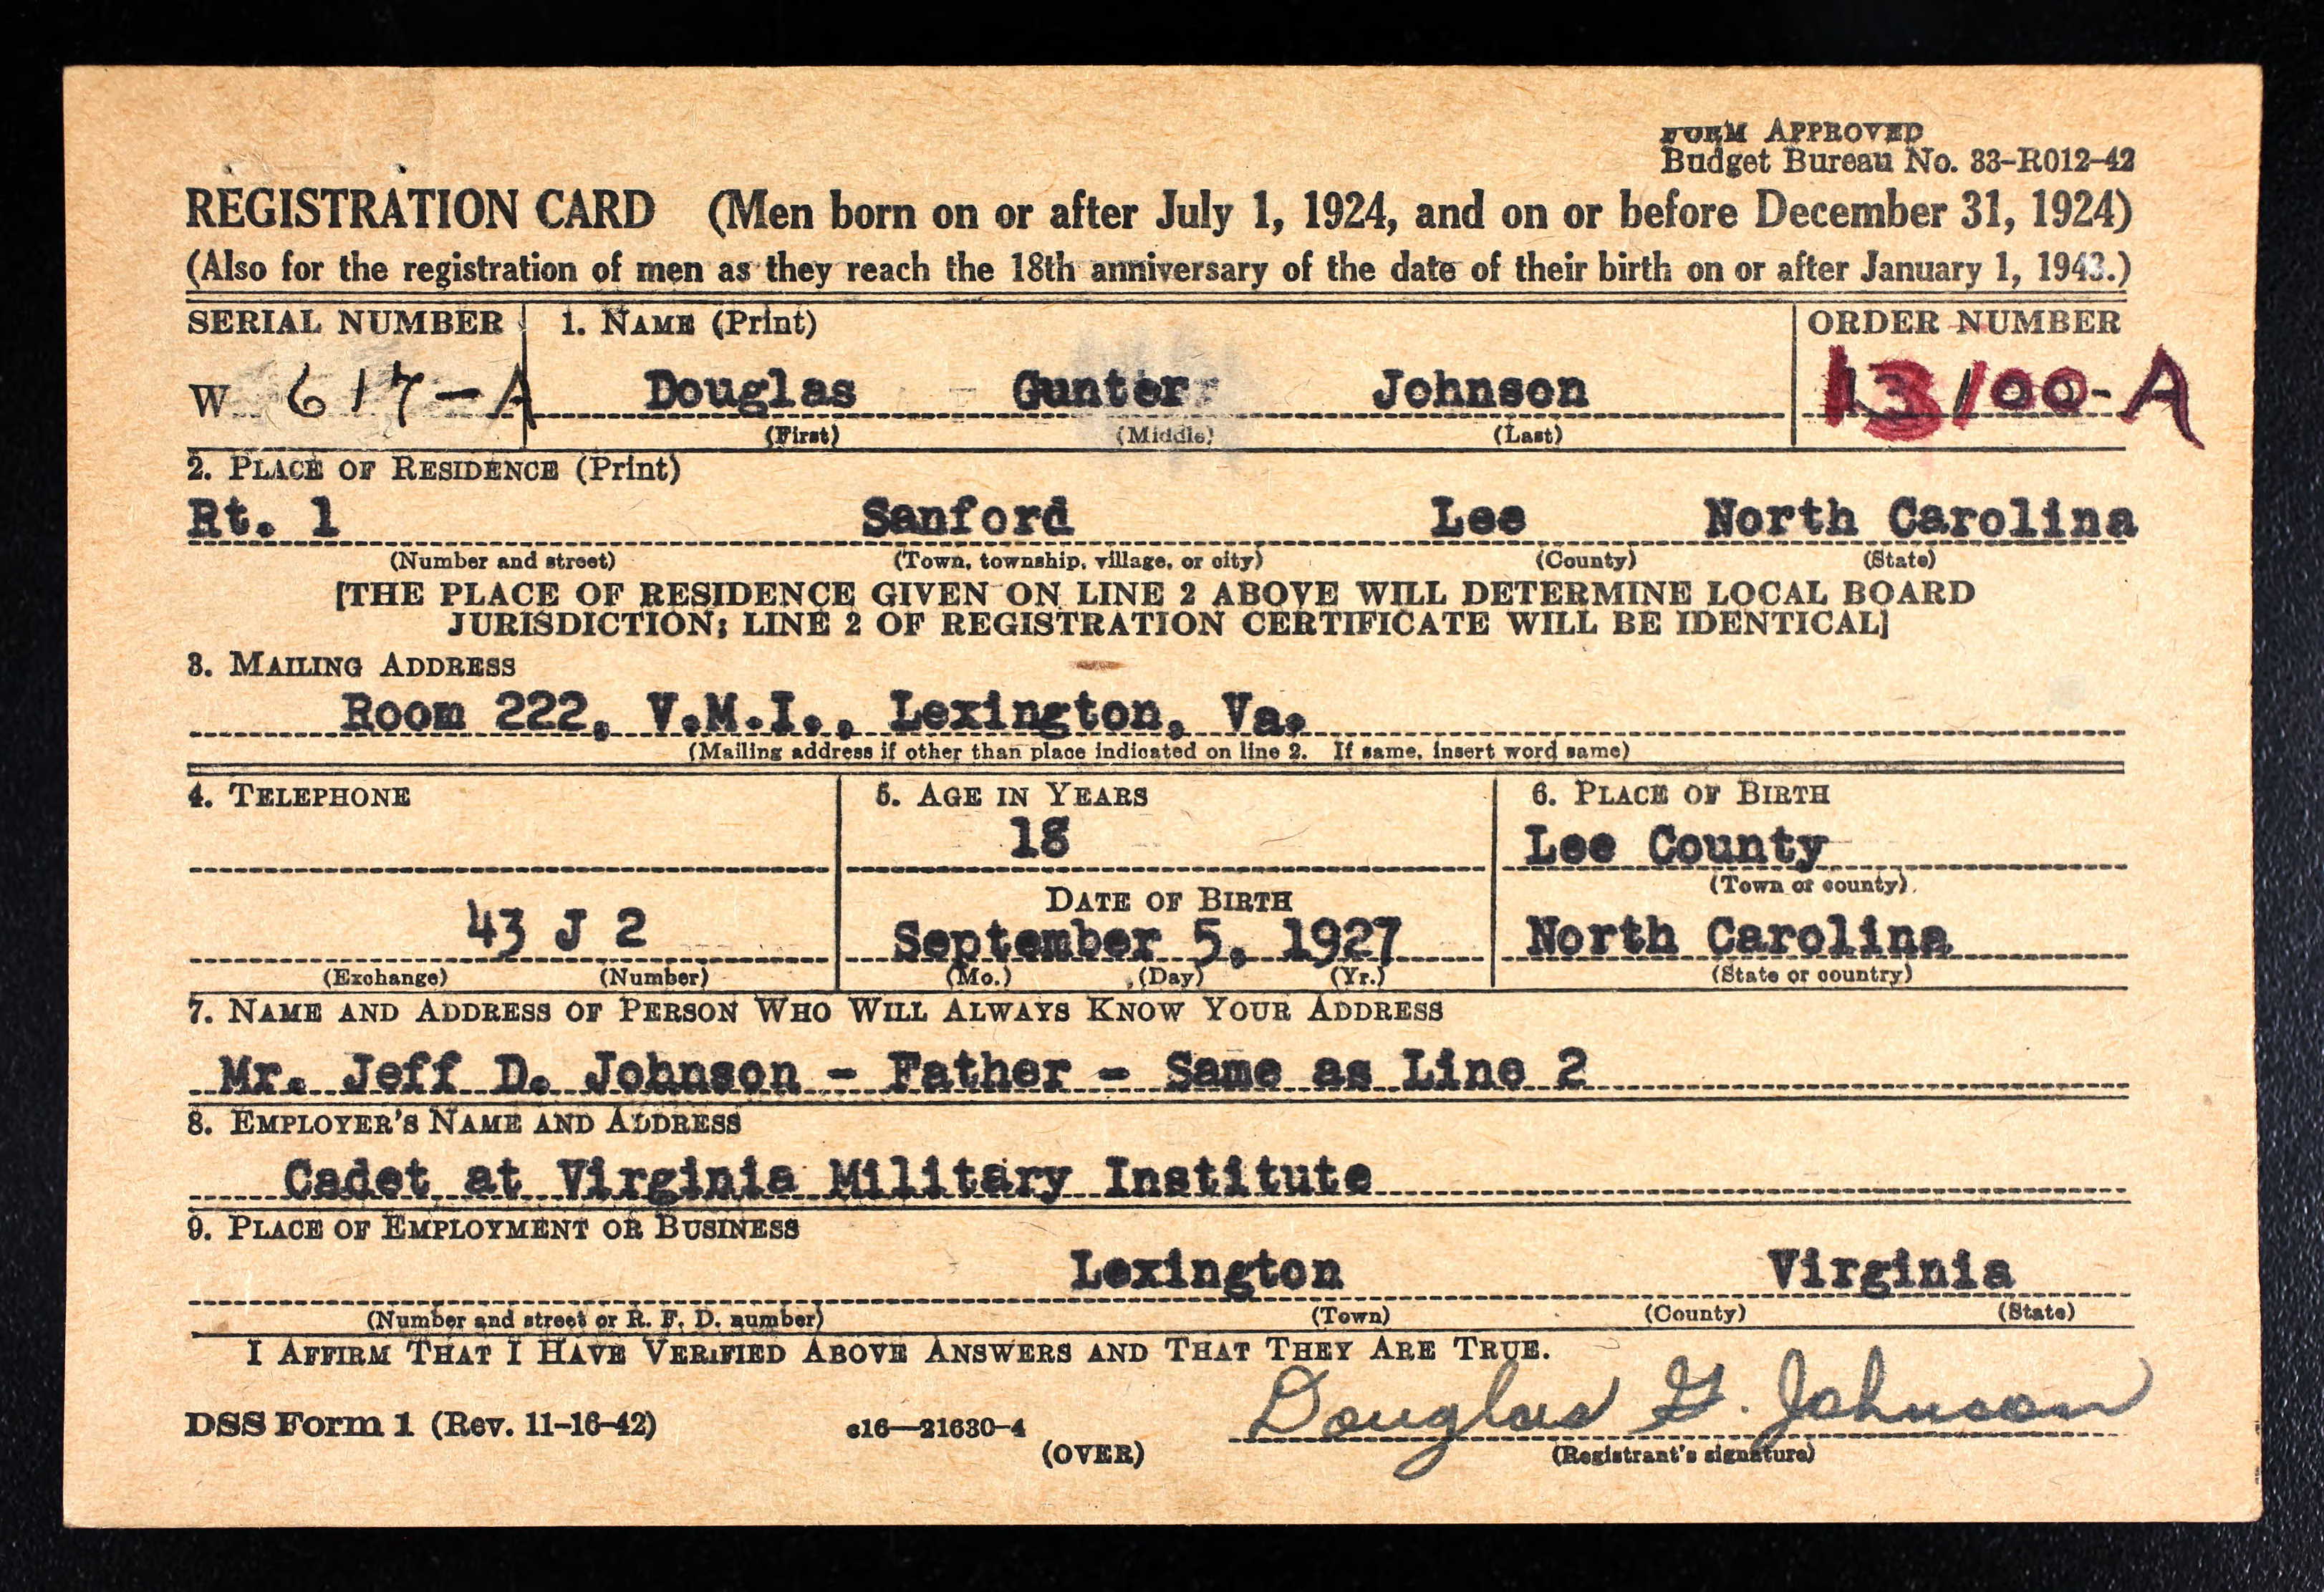 FORM APPROVED
Budget Bureau No. 33-R012-42
REGISTRATION CARD (Men born on or after July 1, 1924, and on or before December 31, 1924)
(Also for the registration of men as they reach the 18th anniversary of the date of their birth on or after January 1, 1943.)
SERIAL NUMBER 1. NAME (Print) ORDER NUMBER
W 617-A Douglas Gunter Johnson 13100-A
(First) (Middle) (Last)
2. PLACE OF RESIDENCE (Print)
Rt. 1 Sanford Lee North Carolina
(Number and street) (Town, township, village, or city) (County) (State)
[THE PLACE OF RESIDENCE GIVEN ON LINE 2 ABOVE WILL DETERMINE LOCAL BOARD
JURISDICTION; LINE 2 OF REGISTRATION CERTIFICATE WILL BE IDENTICAL]
3. MAILING ADDRESS
Room 222, V.M.I., Lexington, Va.
(Mailing address if other than place indicated on line 2. If same, insert word same)
4. TELEPHONE 5. AGE IN YEARS 6. PLACE OF BIRTH
18 Lee County
(Town or county)
DATE OF BIRTH
43 J 2 September 5, 1927 North Carolina
(Exchange) (Number) (Mo.) (Day) (Yr.) (State or country)
7. NAME AND ADDRESS OF PERSON WHO WILL ALWAYS KNOW YOUR ADDRESS
Mr. Jeff D. Johnson - Father - Same as Line 2
8. EMPLOYER'S NAME AND ADDRESS
Cadet at Virginia Military Institute
9. PLACE OF EMPLOYMENT OR BUSINESS
Lexington Virginia
(Number and street or R. F. D. number) (Town) (County) (State)
I AFFIRM THAT I HAVE VERIFIED ABOVE ANSWERS AND THAT THEY ARE TRUE.
Douglas G. Johnson
DSS Form 1 (Rev. 11-16-42) c16—21630-4
(OVER) (Registrant's signature)